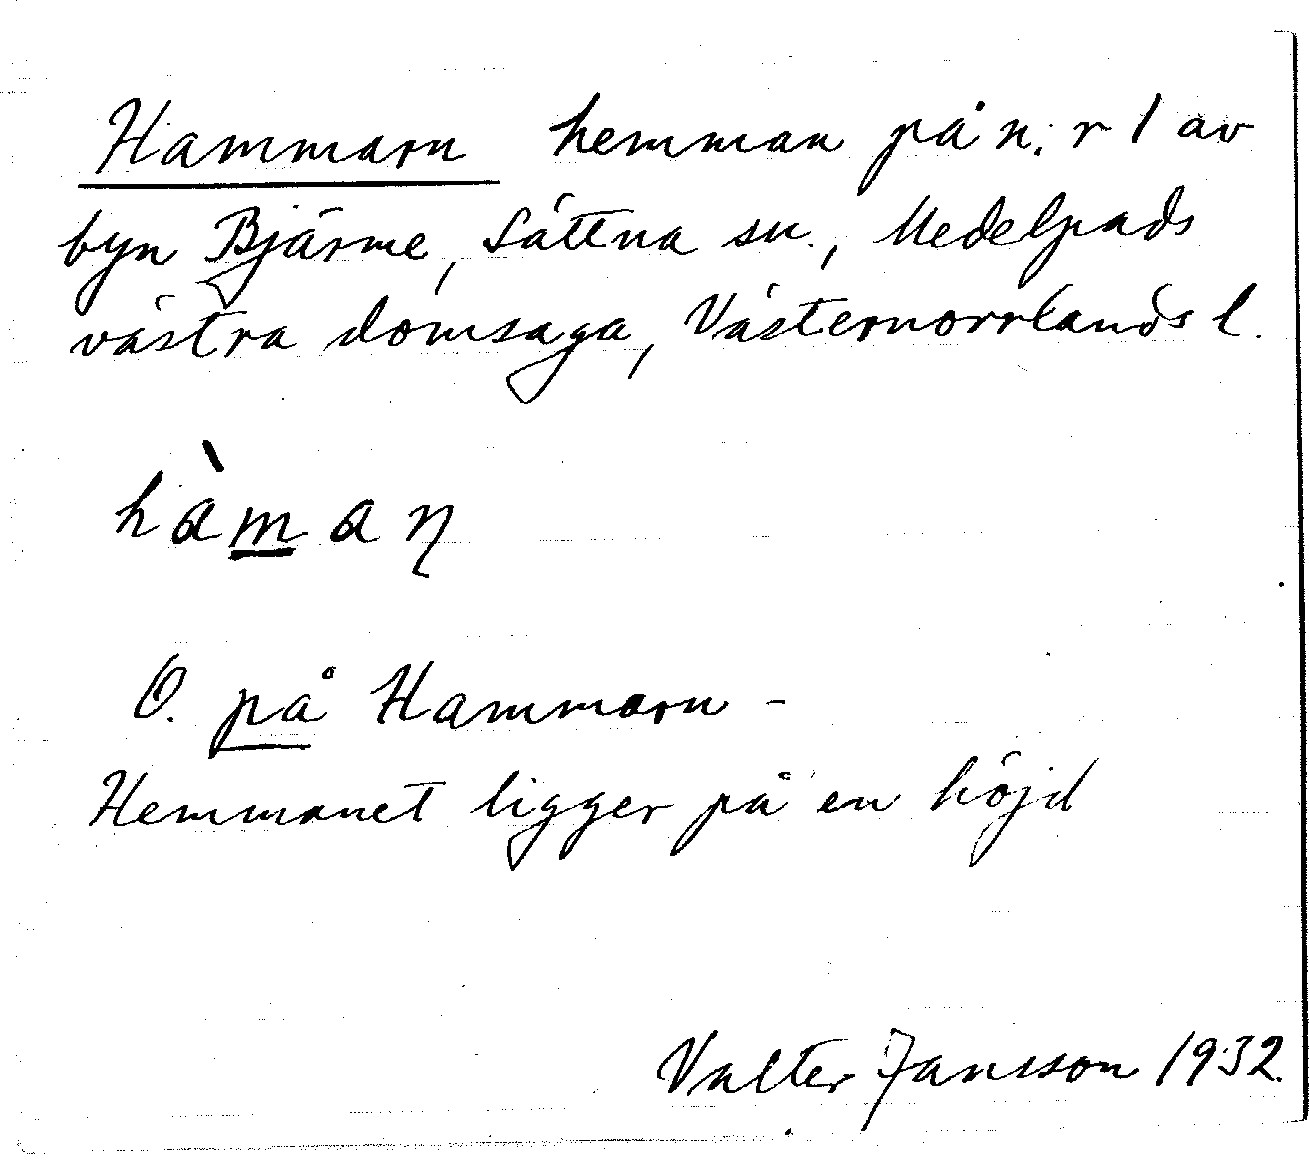 Hammarn hemman på n:r 1 av
byn Bjärme, Sättna sn., Medelpads
västra domsaga, Västernorrlands l.
hàmaɳ
O. på Hammarn –
Hemmanet ligger på en höjd
Valter Jansson 1932.